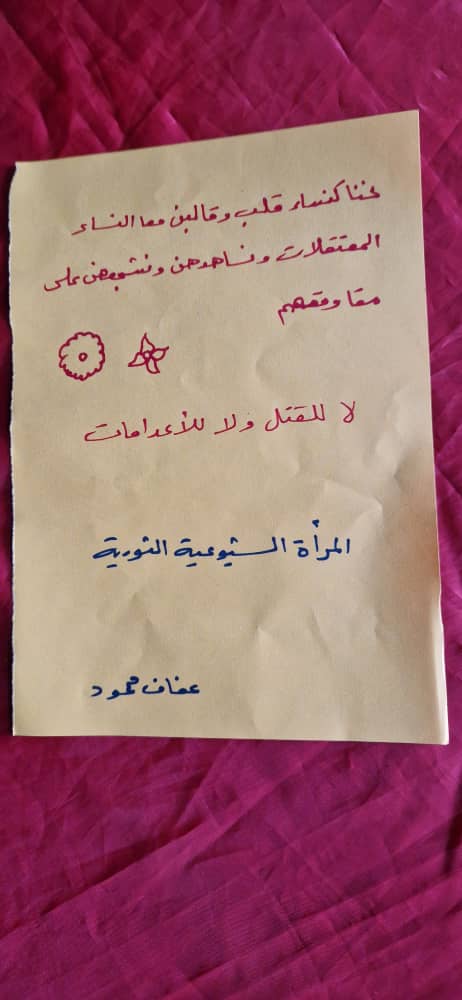 نحنا كنساء قلب وقالبن معا النساء
المعتقلات ونساهدهن ونشجعهن على
مقاومتهم
لا للقتل ولا للأعدامات
المرأة الشيوعية الثورية
عفاف محمود